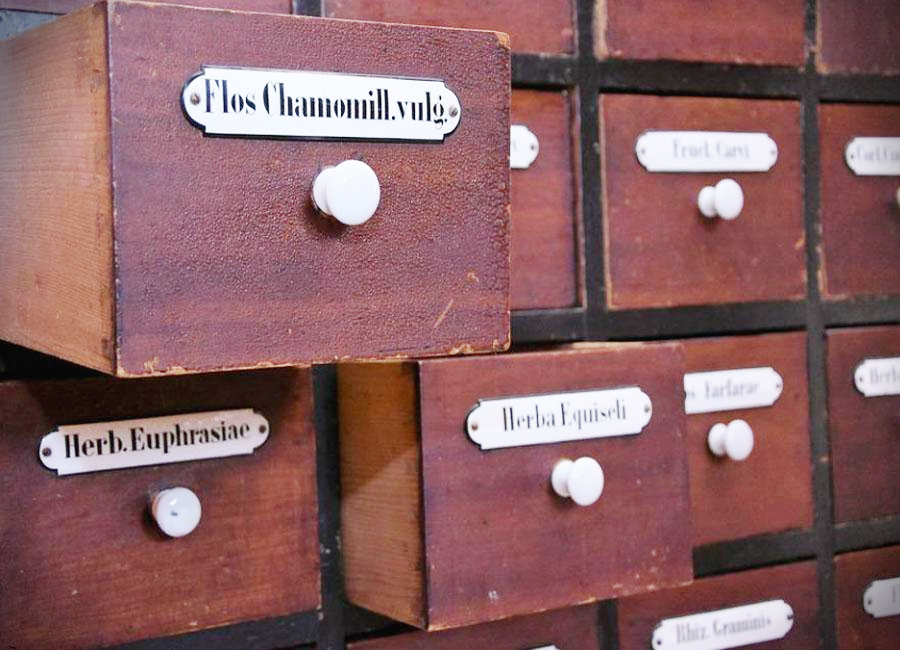 Flos Chamomill.vulg.
Fruct. Carvi
Herb.Euphrasiae
Herba Equiseti
Farfarae
Rhiz. Graminis